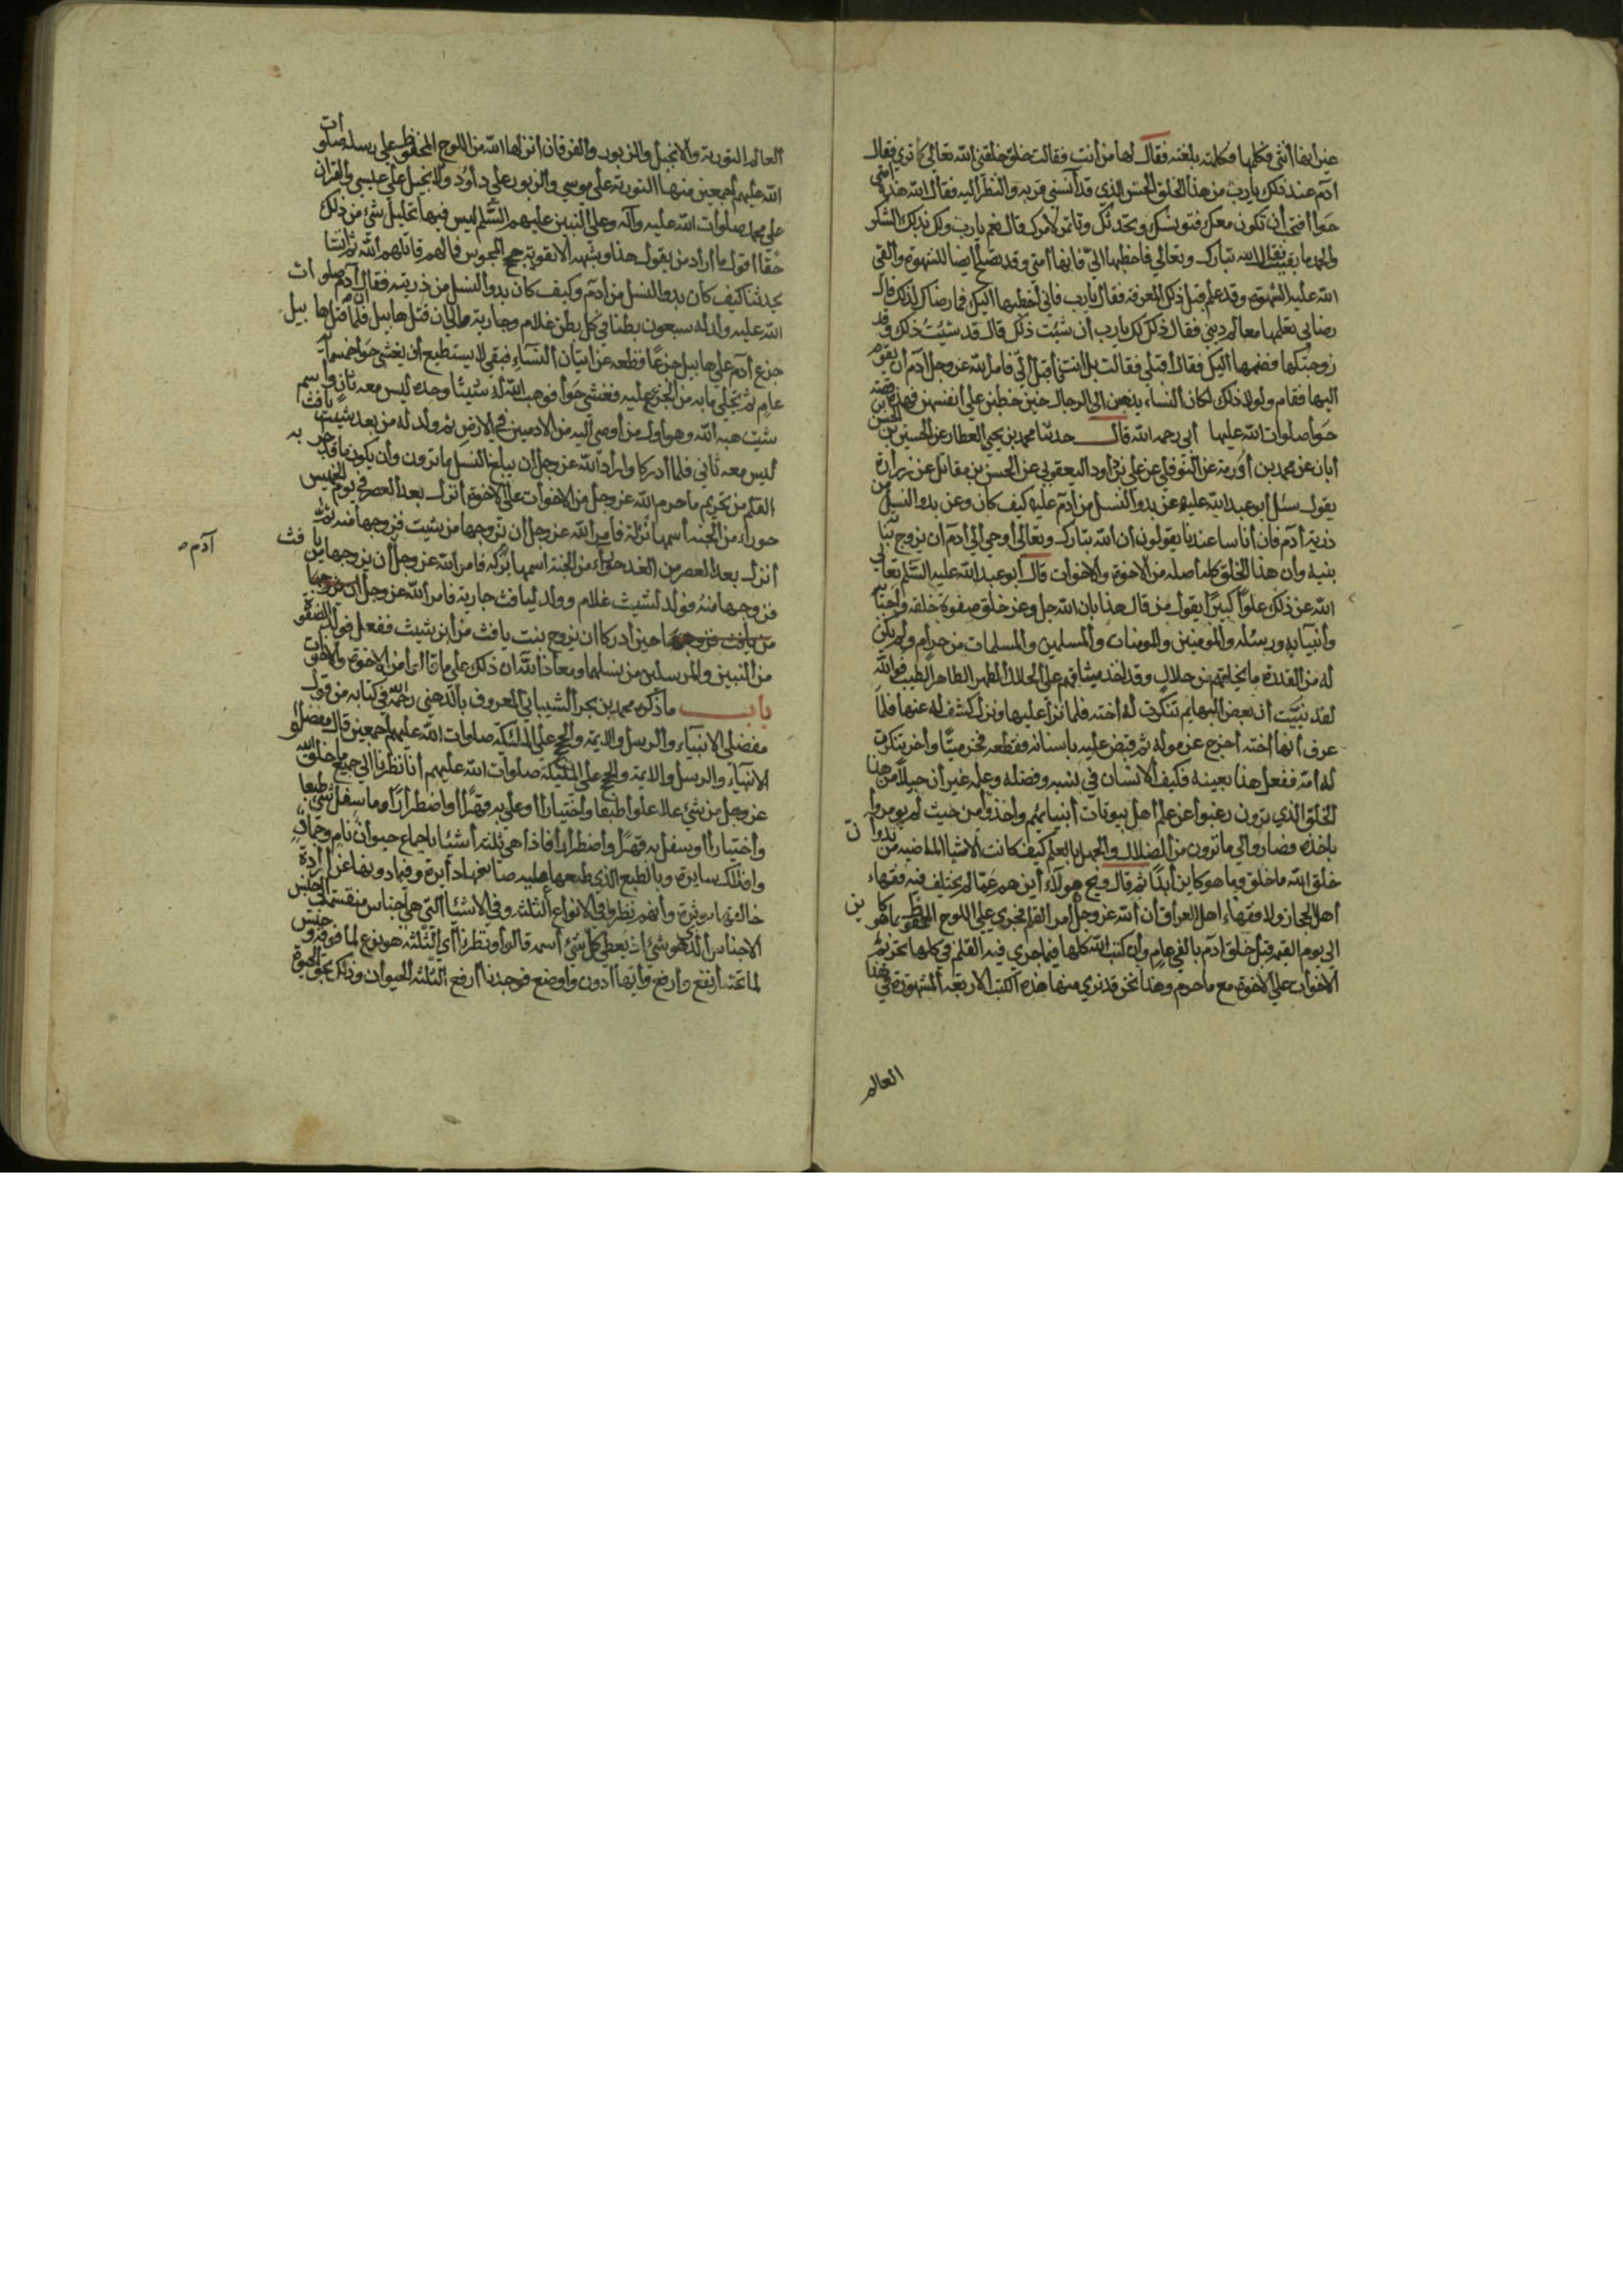 غير أنها أنثى فكلمها فكلمته بلغته فقال لها من أنت فقالت خلق خلقني الله تعالى كما تري فقال
آدم عند ذلك يا رب من هذا الخلق الحسن الذي قد آنسني قربه والنظر اليه فقال الله هذه أمتي
حوا افتحب أن تكون معك فتونسك وتحدثك وتأتمر لامرك قال نعم يا رب ولك بذلك الشكر
والحمد ما بقيت فقال الله تبارك وتعالي فاخطبها الي فأنها أمتي وقد تصلح أيضا للشهوة والقي
الله عليه الشهوة وقد علم قبل ذلك المعرفة فقال يا رب فاني أخطبها اليك فما رضاك لذلك قال
رضاي تعلمها معالم ديني فقال ذلك لك يا رب أن شئت ذلك قال قد شئت ذلك وقد
زوجتكها فضمها اليك فقال أقبلي فقالت بل أنت فأقبل الي فامر الله عز وجل آدم أن يقوم
اليها فقام ولولا ذلك لكان النساء يذهبن الي الرجال حين خطبن علي أنفسهن فهذه قصة
حوا صلوات الله عليها أبي رحمه الله قال حدثنا محمد بن يحيى العطار عن الحسين بن الحسن بن
أبان عن محمد بن أورمة عن النوفلي عن علي بن داود اليعقوبي عن الحسن بن مقاتل عن زرارة
يقول سئل أبو عبد الله عليه عن بدو النسل من آدم عليه كيف كان وعن بدو النسل من
ذرية آدم فان أناسا عندنا يقولون أن الله تبارك وتعالي أوحي الي آدم أن يزوج بناته
بنيه وأن هذا الخلق كله أصله من الاخوة والاخوات قال أبو عبد الله عليه السلم تعالي
الله عن ذلك علوا كبيرا يقول من قال هذا بان الله جل وعز خلق صفوة خلقه وأحباه
وأنبيايه ورسله والمومنين والمومنات والمسلمين والمسلمات من حرام ولم يكن
له من القدرة ما يخلقهم من حلال وقد أخذ ميثاقهم علي الحلال الطهر الطاهر الطيب فوالله
لقد نبيت أن بعض البهايم تنكرت له أخته فلما نزا عليها ونزل كشف له عنها فلما
عرف أنها أخته أخرج عزموله ثم قبض عليه باسنانه فقطعه فخر ميتا وآخر تنكرت
له أمه ففعل هذا بعينه فكيف الانسان في نسبه وفضله وعلمه غير أن جيلا من هذا
الخلق الذي ترون رغبوا عن علم أهل بيوتات أنبيائهم وأخذوا من حيث لم يومروا
باخذه فصاروا الي ما ترون من الضلال والجهل بالعلم كيف كانت الاشيا الماضيه من بدو أن
خلق الله ما خلق وما هو كاين أبدا ثم قال ويح هولاء أين هم عما لم يختلف فيه فقهاء
أهل الحجاز ولا فقهاء اهل العراق أن الله عز وجل أمر القلم فجري علي اللوح المحفوظ بما هو كاين
الي يوم القيمة قبل خلق آدم بالفي عام وأن كتب الله كلها فيما جري فيه القلم في كلها تحريم
الاخوات علي الاخوة مع ما حرم وهذا نحن قد نري منها هذه الكتب الاربعة المشهورة في هذا
العالم
العالم التورية والانجيل والزبور والفرقان أنزلها الله من اللوح المحفوظ علي رسله صلوات
الله عليهم أجمعين منها التورية علي موسي والزبور علي داود والانجيل علي عيسي والقران
علي محمد صلوات الله عليه وآله وعلي النبيين عليهم السلم ليس فيها تحليل شئ من ذلك
حقا أقول ما أراد من يقول هذا وشبهه الا تقوية حجج المجوس فما لهم قاتلهم الله ثم أنشا
يحدثنا كيف كان بدو النسل من آدم وكيف كان بدو النسل من ذريته فقال أن آدم صلوات
الله عليه ولد له سبعون بطنا في كل بطن غلام وجارية الي ان قتل هابيل فلما قتل هابيل
جزع آدم علي هابيل جزعا قطعه عن اتيان النساء فبقي لا يستطيع أن يغشي حوا خمسمأة
عام ثم تجلي ما به من الجزع عليه فغشي حوا فوهب الله له شيثا وحده ليس معه ثان واسم
شيث هبه الله وهو أول من أوصي اليه من الادميين في الارض ثم ولد له من بعد شيث يافث
ليس معه ثاني فلما أدركا وأراد الله عز وجل أن يبلغ النسل ما ترون وأن يكون ما قد جري به
القلم من تحريم ما حرم الله عز وجل من الاخوات علي الاخوة أنزل بعد العصر في يوم الخميس
حوراء من الجنة أسمها نزلة فامر الله عز وجل أن يزوجها من شيث فزوجها منه ثم
أنزل بعد العصر من الغد حوراء من الجنة اسمها بركة فامر الله عز وجل أن يزوجها من يافث
آدم ص
فزوجها منه فولد لشيث غلام وولد ليافث جارية فامر الله عز وجل
حين أدركا ان يزوج بنت يافث من أبن شيث ففعل فولد الصفوة
من النبيين والمرسلين من نسلهما ومعاذ الله ان ذلك علي ما قالوا من الاخوة والاخوات
باب ما ذكره محمد بن بحر الشيباني المعروف بالدهني رحمه الله في كتابه من قول
مفضلي الانبياء والرسل والايمة والحجج علي الملئكة صلوات الله عليهم أجمعين قال مفضلوا
الانبياء والرسل والايمة والحجج علي الملئكة صلوات الله عليهم أنا نظرنا الي جميع ما خلق الله
عز وجل من شيء علا علوا طبعا واختيارا أو علي به قهرا أو اضطرارا وما سفل شئ طبعا
وأختيارا أو يسفل به قهرا وأضطرارا فاذا هي ثلثة أشيا باجماع حيوان نام وجماد
وافلاك سايرة وبالطبع الذي طبعها عليه صانعها دايرة وفيما دونها عن ارادة
خالقها موثرة وأنهم نظروا في الانواع الثلثه وفي الاشيا التي هي أجناس منقسمة الي جنس
الاجناس الذي هو شئ أذ يعطي كل شئ أسمه قالوا ونظرنا أي الثلثه هو نوع لما فوقه وجنس
لما تحته أنفع وأرفع وأيها أدون وأوضع فوجدنا أرفع الثلثه الحيوان وذلك بحق الحيوة